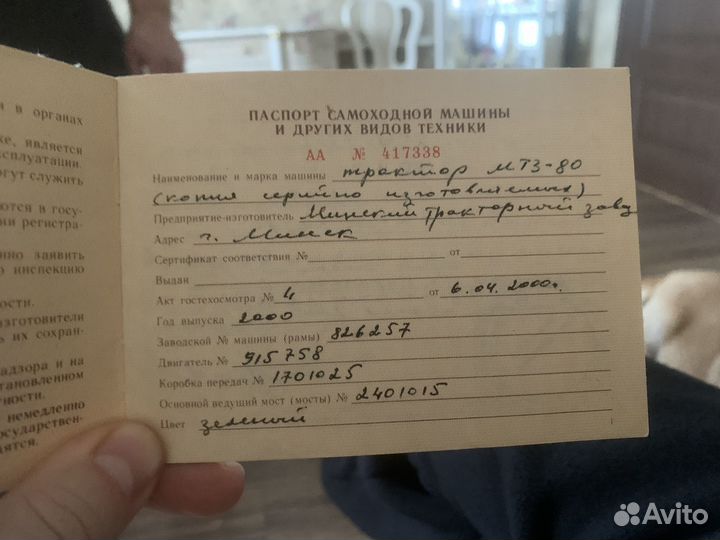 я в органах
ке, является
сплуатации.
огут служить
ются в госу-
ии регистра-
нно заявить
ю инспекцию
ности.
зготовители
ь их сохран-
адзора и на
становленном
ности.
немедленно
осударствен-
дятся.
ПАСПОРТ САМОХОДНОЙ МАШИНЫ
И ДРУГИХ ВИДОВ ТЕХНИКИ
АА № 417338
Наименование и марка машины трактор МТЗ-80
(копия серийно изготовляемых)
Предприятие-изготовитель Минский тракторный завод
Адрес г. Минск
Сертификат соответствия № от
Выдан
Акт гостехосмотра № 4 от 6.04.2000г.
Год выпуска 2000
Заводской № машины (рамы) 826257
Двигатель № 915758
Коробка передач № 1701025
Основной ведущий мост (мосты) № 2401015
Цвет зеленый
Avito